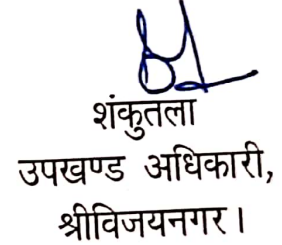 शंकुतला
उपखण्ड अधिकारी,
श्रीविजयनगर।